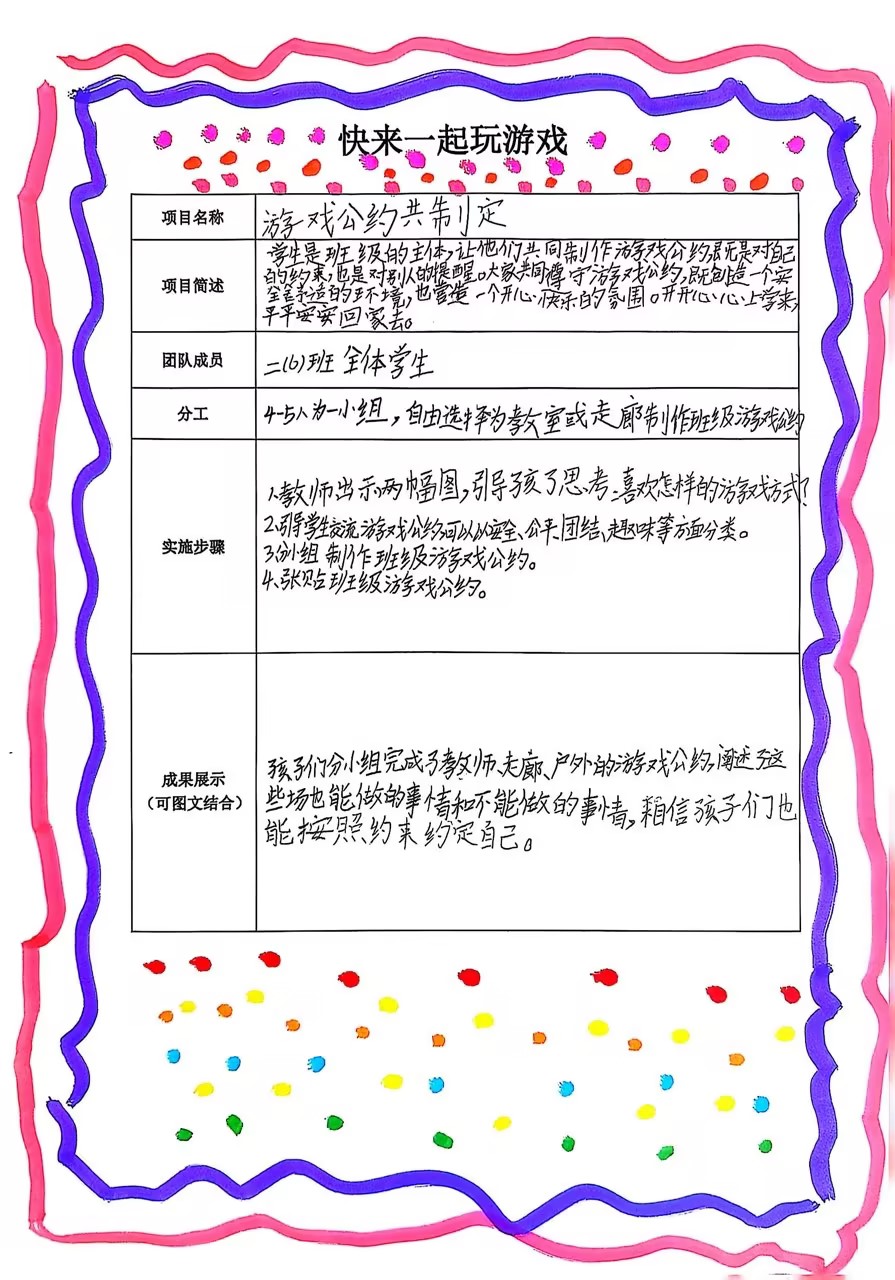 快来一起玩游戏
项目名称 游戏公约共制定
项目简述
学生是班级的主体,让他们共同制作游戏公约,既是对自己
的约束,也是对别人的提醒。大家共同遵守游戏公约,既创造一个安
全舒适的环境,也营造一个开心快乐的氛围。开开心心上学来,
平平安安回家去。
团队成员 二(6)班 全体学生
分工 4-5人为一小组,自由选择为教室或走廊制作班级游戏公约
实施步骤
1.教师出示两幅图,引导孩子思考:喜欢怎样的游戏方式?
2.引导学生交流游戏公约,可以从安全、公平、团结、趣味等方面分类。
3.分组制作班级游戏公约。
4.张贴班级游戏公约。
成果展示
(可图文结合)
孩子们分小组完成了教师、走廊、户外的游戏公约,阐述了这
些场地能做的事情和不能做的事情,相信孩子们也
能按照约来约定自己。